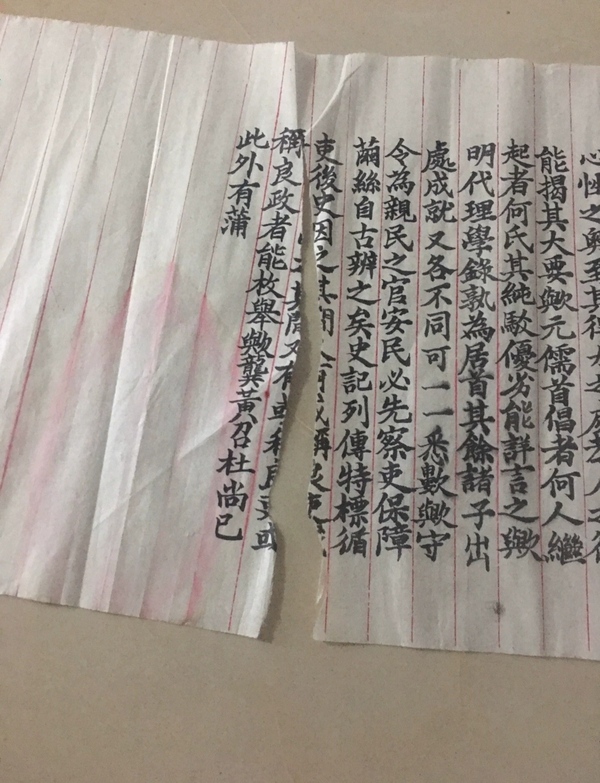 心性之奧至其得
能揭其大要歟元儒首倡者何人繼
起者何氏其純駁優劣能詳言之歟
明代理學錄孰為居首其餘諸子出
處成就又各不同可一一悉數歟守
令為親民之官安民必先察吏保障
繭絲自古辨之矣史記列傳特標循
吏後史因之其間又有或稱良吏或
稱良政者能枚舉歟龔黃召杜尚已
此外有蒲